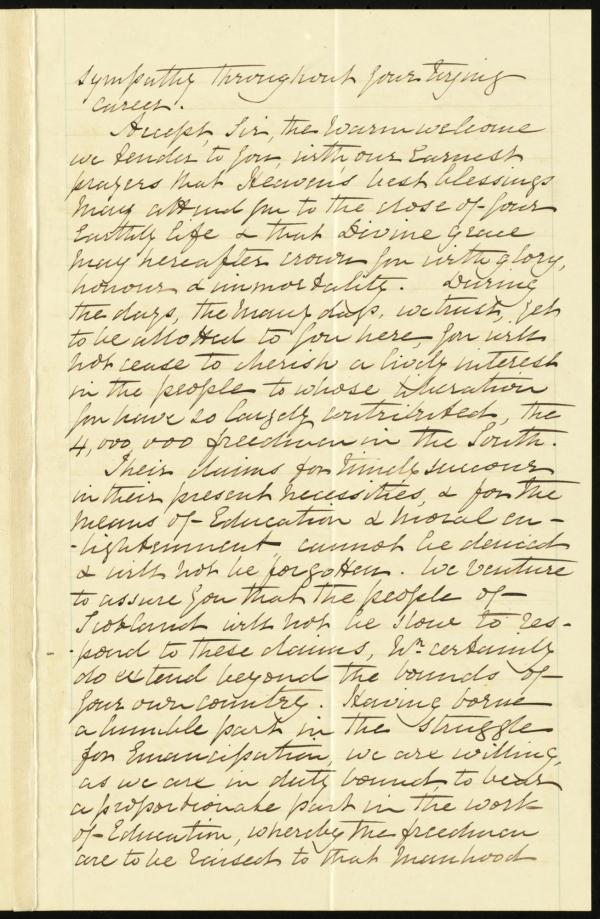 sympathy throughout your trying
career.
Accept, Sir, the warm welcome
we tender to you, with our earnest
prayers that Heaven's best blessings
may attend you to the close of your
Earthly life & that Divine grace
may hereafter crown you with glory,
honour & immortality. During
the days, the many days, we trust, yet
to be allotted to you here, you will
not cease to cherish a lively interest
in the people to whose liberation
you have so largely contributed, the
4,000,000 freedmen in the South.
Their claims for timely succour
in their present necessities, & for the
means of Education & moral en-
-lightenment, cannot be denied
& will not be forgotten. We venture
to assure you that the people of
Scotland will not be slow to res-
-pond to these claims, Wh. certainly
do extend beyond the bounds of
your own country. Having borne
a humble part in the struggle
for Emancipation, we are willing,
as we are in duty bound, to bear
a proportionate part in the work
of Education, whereby the freedmen
are to be raised to that manhood